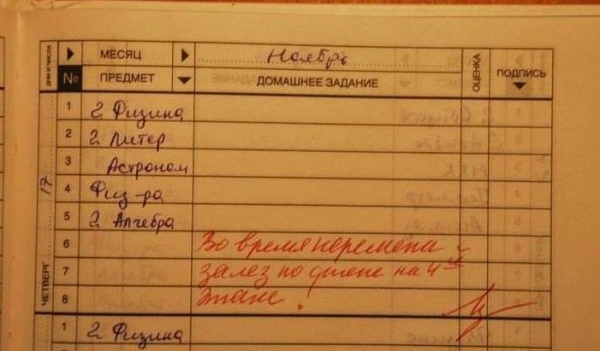 ДНИ И ЧИСЛА
МЕСЯЦ Ноябрь
№ ПРЕДМЕТ ДОМАШНЕЕ ЗАДАНИЕ ОЦЕНКА ПОДПИСЬ
17
ЧЕТВЕРГ
1 2 Физика
2 2 Литер
3 Астроном
4 Физ-ра
5 2 Алгебра
6 Во время перемены
7 залез по стене на 4ый
8 этаж!
1 2 Физика